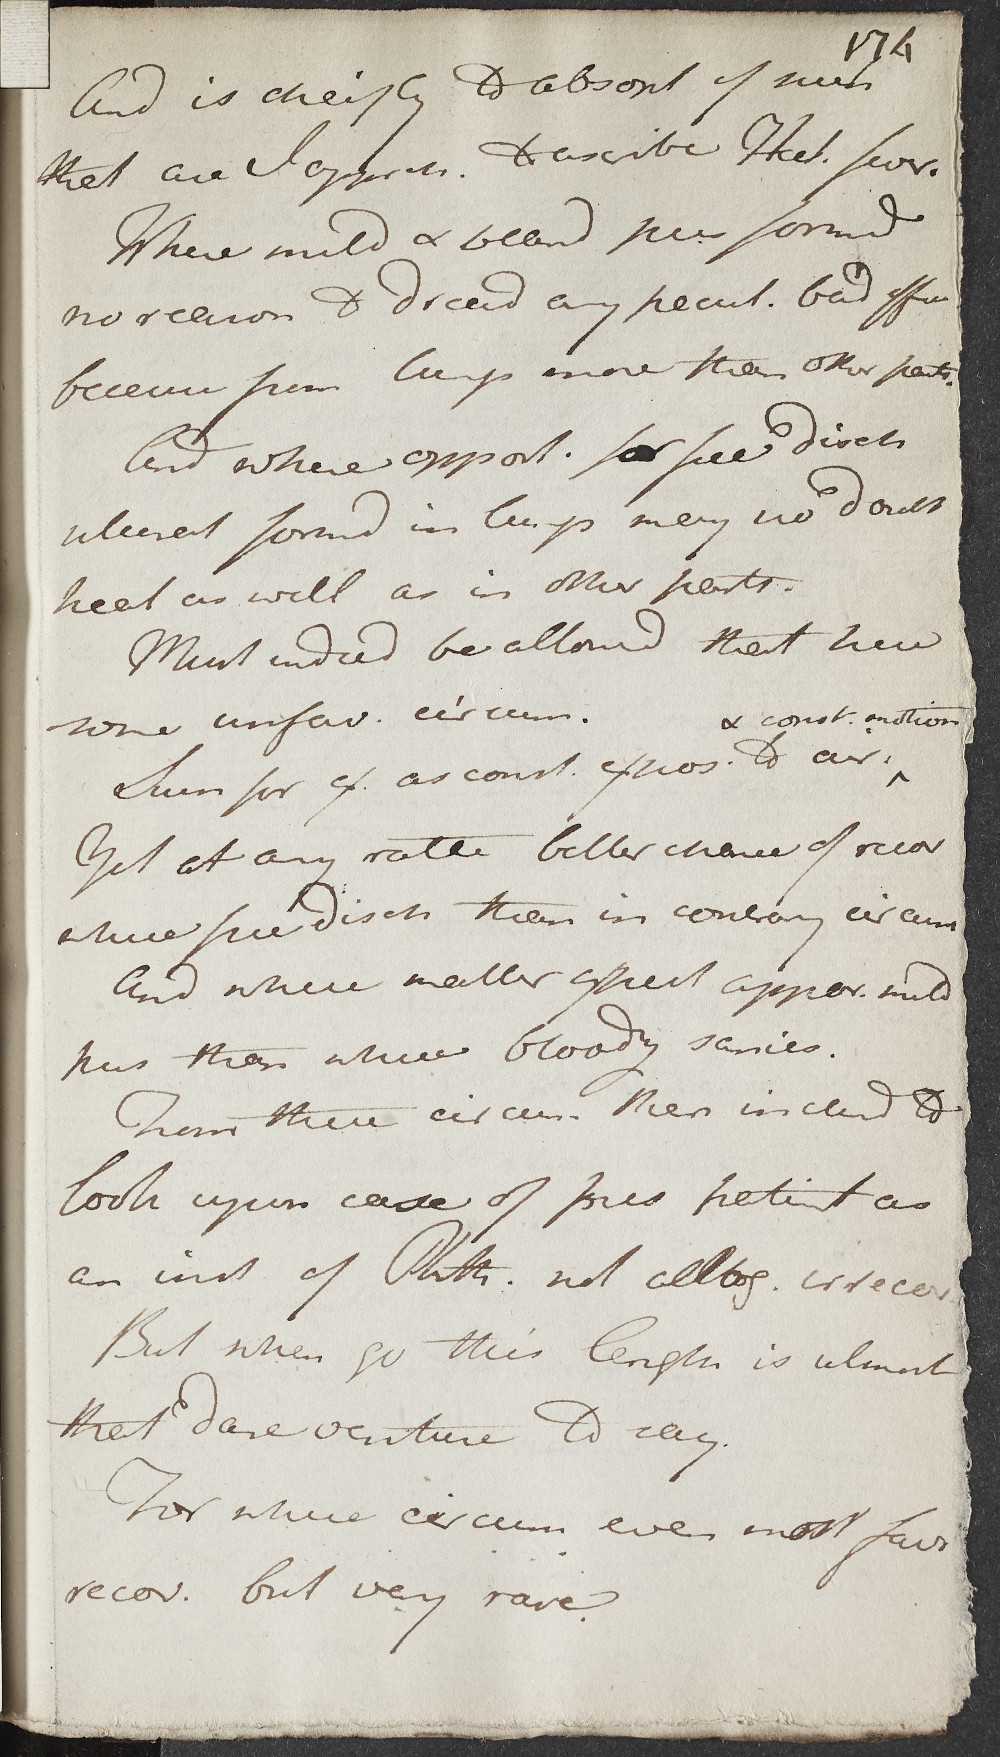 174
And is cheifly to absorpt of such
that are I appreh. to ascribe Hect. fever.
Where mild & bland pus formd
no reason to dread any pecul. bad effec
because from lungs more than other parts.
And where opport. for free disch
ulcerat formd in lungs may no doubt
heal as well as in other parts.
Must indeed be allowed that here
some unfav. circum.
& const. motion
Such for ex. as const. expos. to air.
Yet at any rate better chance of recov
where free disch than in contrary circum
And where matter expect appear. mild
pus than where bloody sanies.
From these circum. then inclind to
look upon case of pres patient as
an inst of Phth. not alltog. irrecov
But when go this length is utmost
that dare venture to say.
For where circum even most fav
recov. but very rare.